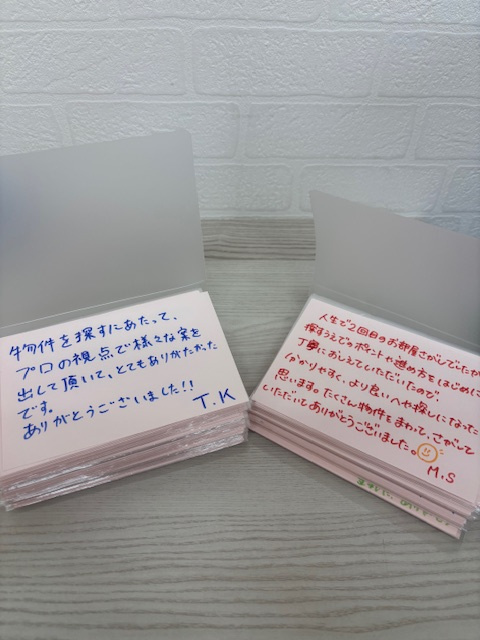 物件を探すにあたって、
プロの視点で様々な案を
出して頂いて、とてもありがたかった
です。
ありがとうございました!!
T.K
人生で2回目のお部屋さがしでしたが
探すうえでのポイントや進め方をはじめに
丁寧におしえていただいたので
分かりやすく、より良いへや探しになったと
思います。たくさん物件をまわって、さがして
いただいてありがとうございました。
M.S